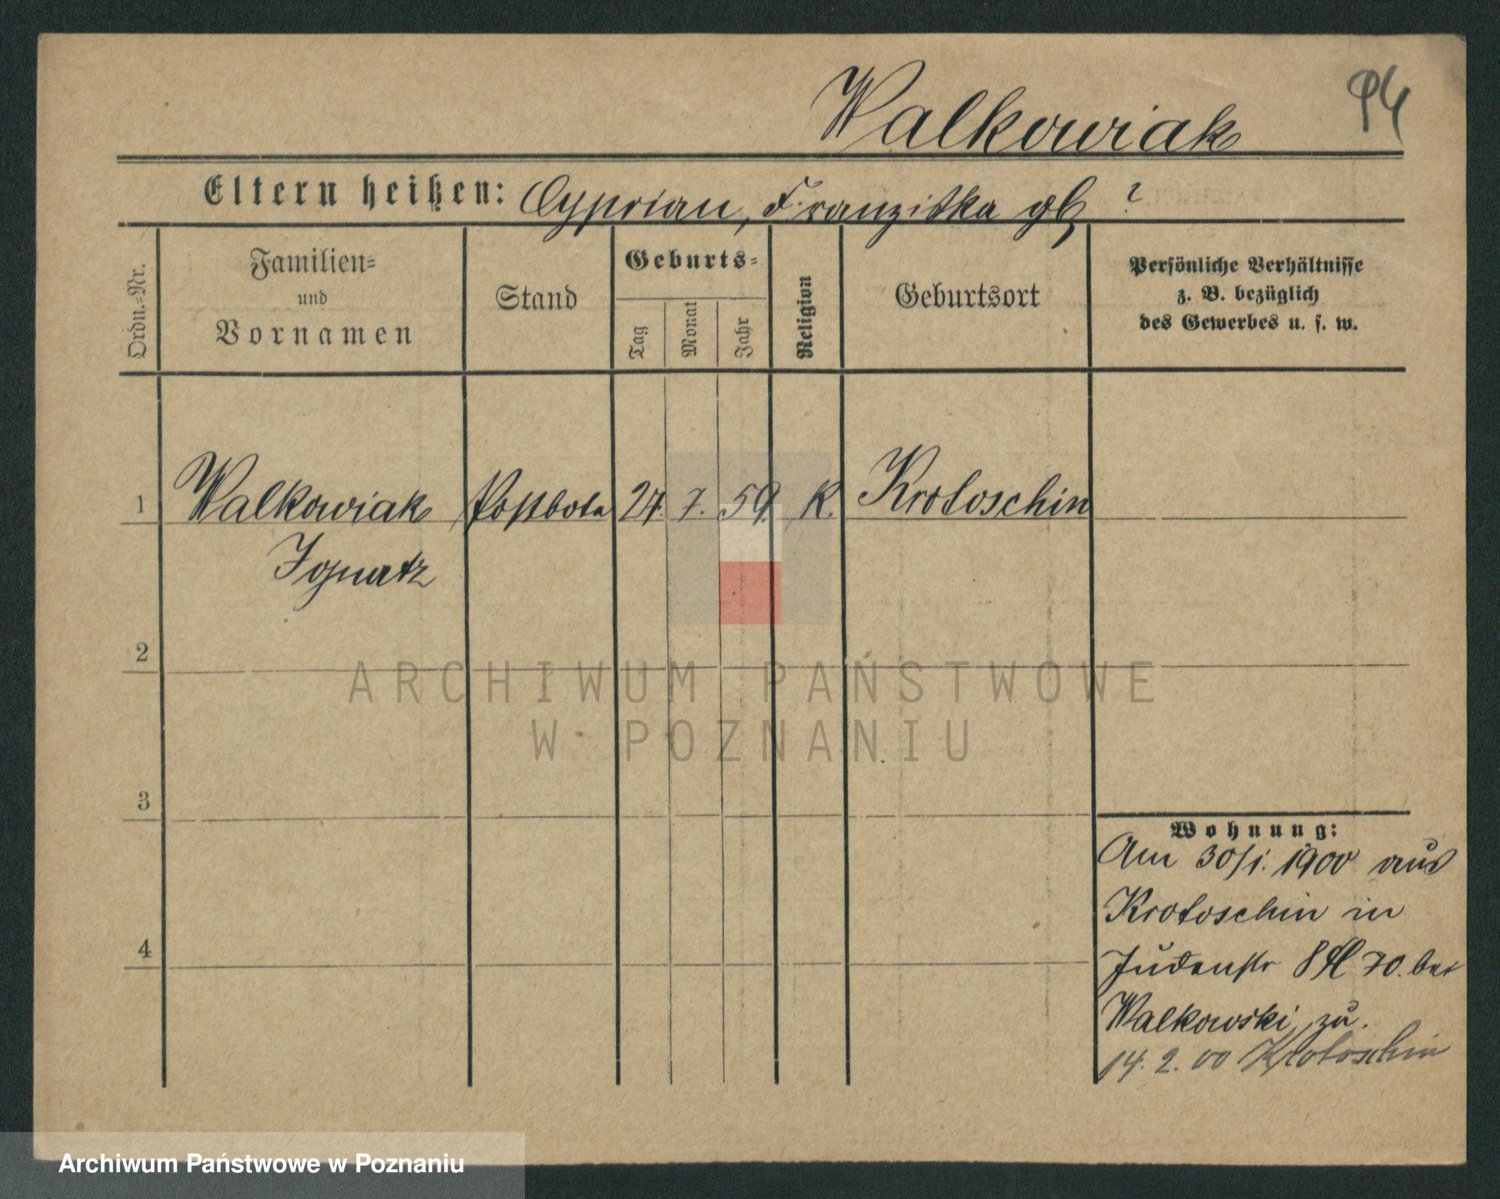 Walkowiak
94
Eltern heißen: Cyprian, Franziska gb ?
Ordn.-Nr.
Familien- und Vornamen
Stand
Geburts-
Tag
Monat
Jahr
Religion
Geburtsort
Persönliche Verhältnisse
z. B. bezüglich
des Gewerbes u. s. w.
1 Walkowiak Postbote 24. 7. 59. K. Krotoschin
Ignatz
2
3
4
Wohnung:
Am 30/1. 1900 aus
Krotoschin in
Judenstr 8 70. bei
Walkowski zu.
14. 2. 00 Krotoschin
ARCHIWUM PAŃSTWOWE
W POZNANIU
Archiwum Państwowe w Poznaniu